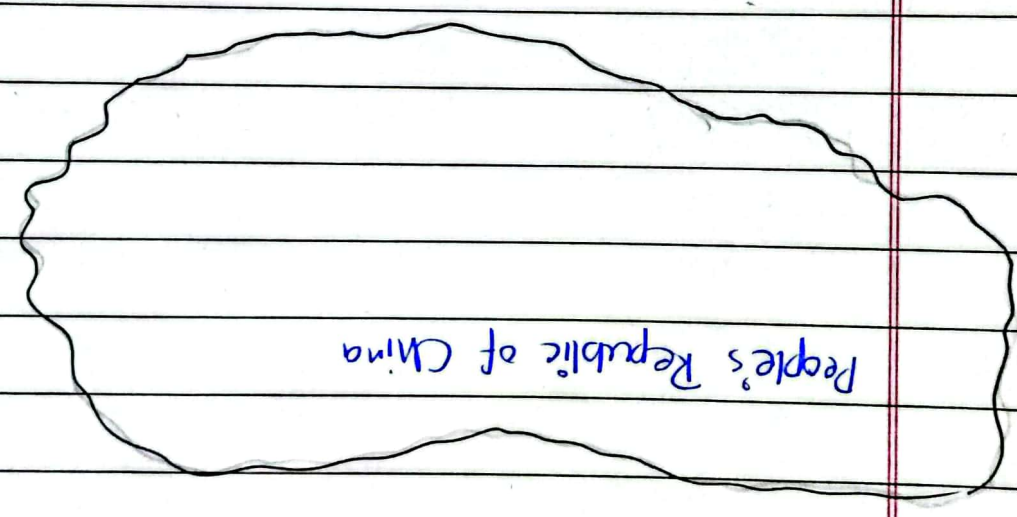 People's Republic of China